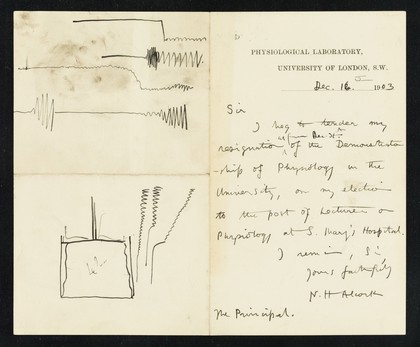 PHYSIOLOGICAL LABORATORY,
UNIVERSITY OF LONDON, S.W.
Dec. 16 1903
Sir
I beg to tender my
as from Dec. 31st
resignation of the Demonstrator
-ship of Physiology in the
University, on my election
to the post of Lecturer on
Physiology at S. Mary's Hospital.
I remain, Sir,
Yours faithfully
N. H. Alcock
The Principal.